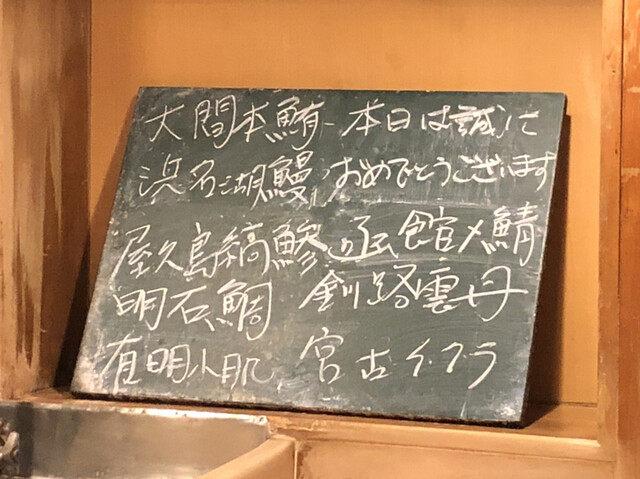 大間本鮪 本日は誠に
浜名湖鰻 おめでとうございます
屋久島縞鯵 函館〆鯖
明石鯛 釧路雲丹
有明小肌 宮古イクラ